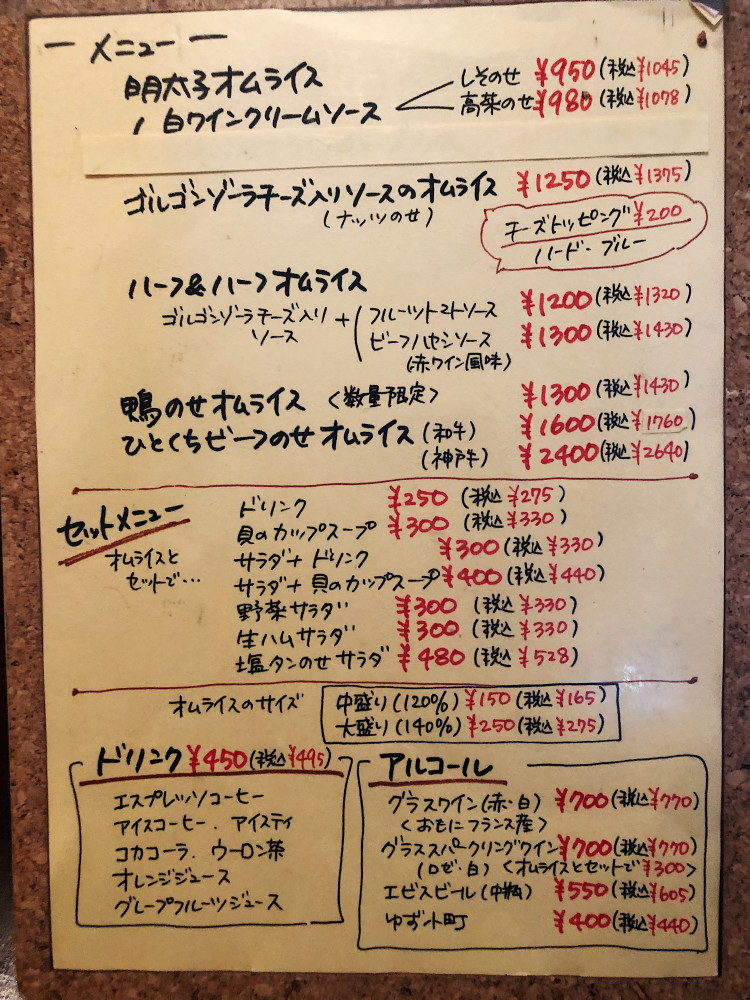 ー メニュー ー
明太子オムライス
しそのせ ¥950(税込¥1045)
白ワインクリームソース
高菜のせ ¥980(税込¥1078)
ゴルゴンゾーラチーズ入りソースのオムライス ¥1250(税込¥1375)
(ナッツのせ)
チーズトッピング ¥200
ハード・ブルー
ハーフ&ハーフオムライス
ゴルゴンゾーラチーズ入りソース + フルーツトマトソース ¥1200(税込¥1320)
ビーフハヤシソース ¥1300(税込¥1430)
(赤ワイン風味)
鴨のせオムライス <数量限定> ¥1300(税込¥1430)
ひとくちビーフのせオムライス (和牛) ¥1600(税込¥1760)
(神戸牛) ¥2400(税込¥2640)
セットメニュー
オムライスと
セットで…
ドリンク ¥250 (税込¥275)
貝のカップスープ ¥300 (税込¥330)
サラダ+ドリンク ¥300(税込¥330)
サラダ+貝のカップスープ ¥400(税込¥440)
野菜サラダ ¥300 (税込¥330)
生ハムサラダ ¥300 (税込¥330)
塩タンのせサラダ ¥480 (税込¥528)
オムライスのサイズ
中盛り(120%) ¥150 (税込¥165)
大盛り(140%) ¥250(税込¥275)
ドリンク ¥450(税込¥495)
エスプレッソコーヒー
アイスコーヒー、アイスティ
コカコーラ、ウーロン茶
オレンジジュース
グレープフルーツジュース
アルコール
グラスワイン(赤・白) ¥700(税込¥770)
<おもにフランス産>
グラススパークリングワイン ¥700(税込¥770)
(ロゼ・白) <オムライスとセットで¥300>
エビスビール(中瓶) ¥550(税込¥605)
ゆず小町 ¥400(税込¥440)